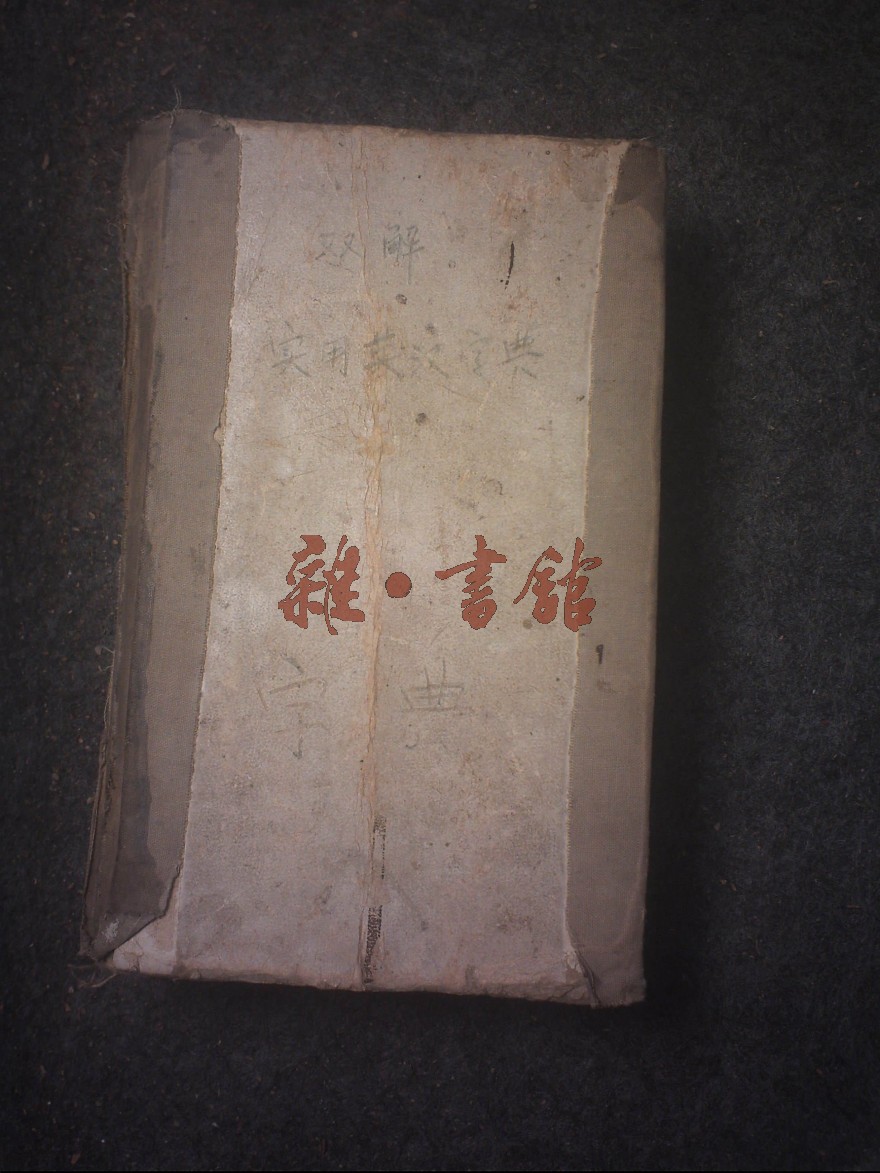 双解
实用英汉字典
雜·書館
字典